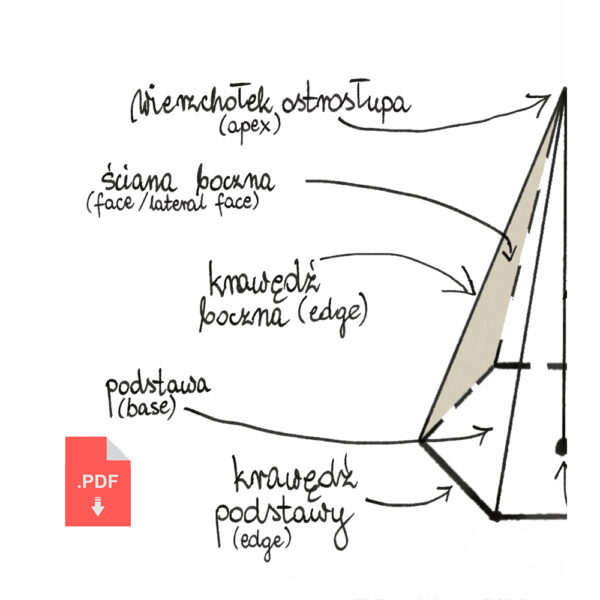 wierzchołek ostrosłupa
(apex)
ściana boczna
(face/lateral face)
krawędź
boczna (edge)
podstawa
(base)
.PDF
krawędź
podstawy
(edge)